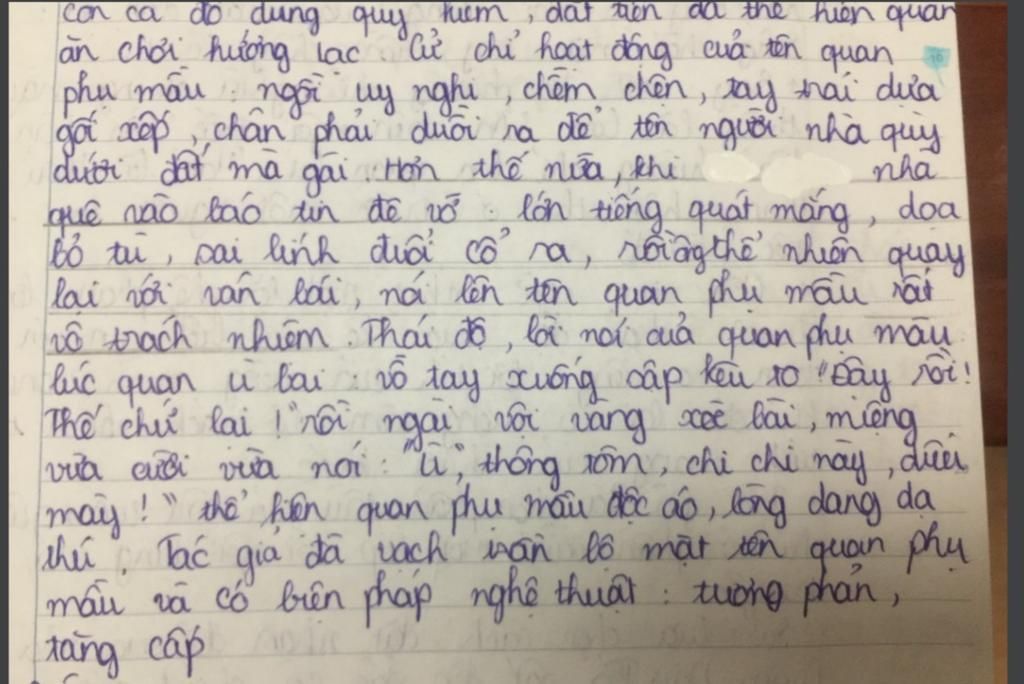 còn cả đồ dùng quý hiếm, đắt tiền đã thể hiện quan
ăn chơi hưởng lạc Cử chỉ hoạt động của tên quan
phụ mẫu : ngồi uy nghi, chễm chện, tay trái dựa
gối xếp, chân phải duỗi ra để tên người nhà quỳ
dưới đất mà gãi. Hơn thế nữa, khi nhà
quê vào báo tin đê vỡ : lớn tiếng quát mắng, doạ
bỏ tù, sai lính đuổi cổ ra, rồi ông thể nhiên quay
lại với ván bài, nói lên tên quan phụ mẫu rất
vô trách nhiệm. Thái độ, lời nói của quan phụ mẫu
lúc quan ù bài : vỗ tay xuống sập kêu to "Đây rồi!
Thế chứ lại !" rồi ngài vội vàng xoè bài, miệng
vừa cười vừa nói : "Ù", thông tôm, chi chi nảy, điếu
mày !" thể hiện quan phụ mẫu độc ác, lòng dang dạ
thú. Tác giả đã vạch trần bộ mặt tên quan phụ
mẫu và có biện pháp nghệ thuật : tương phản,
tăng cấp